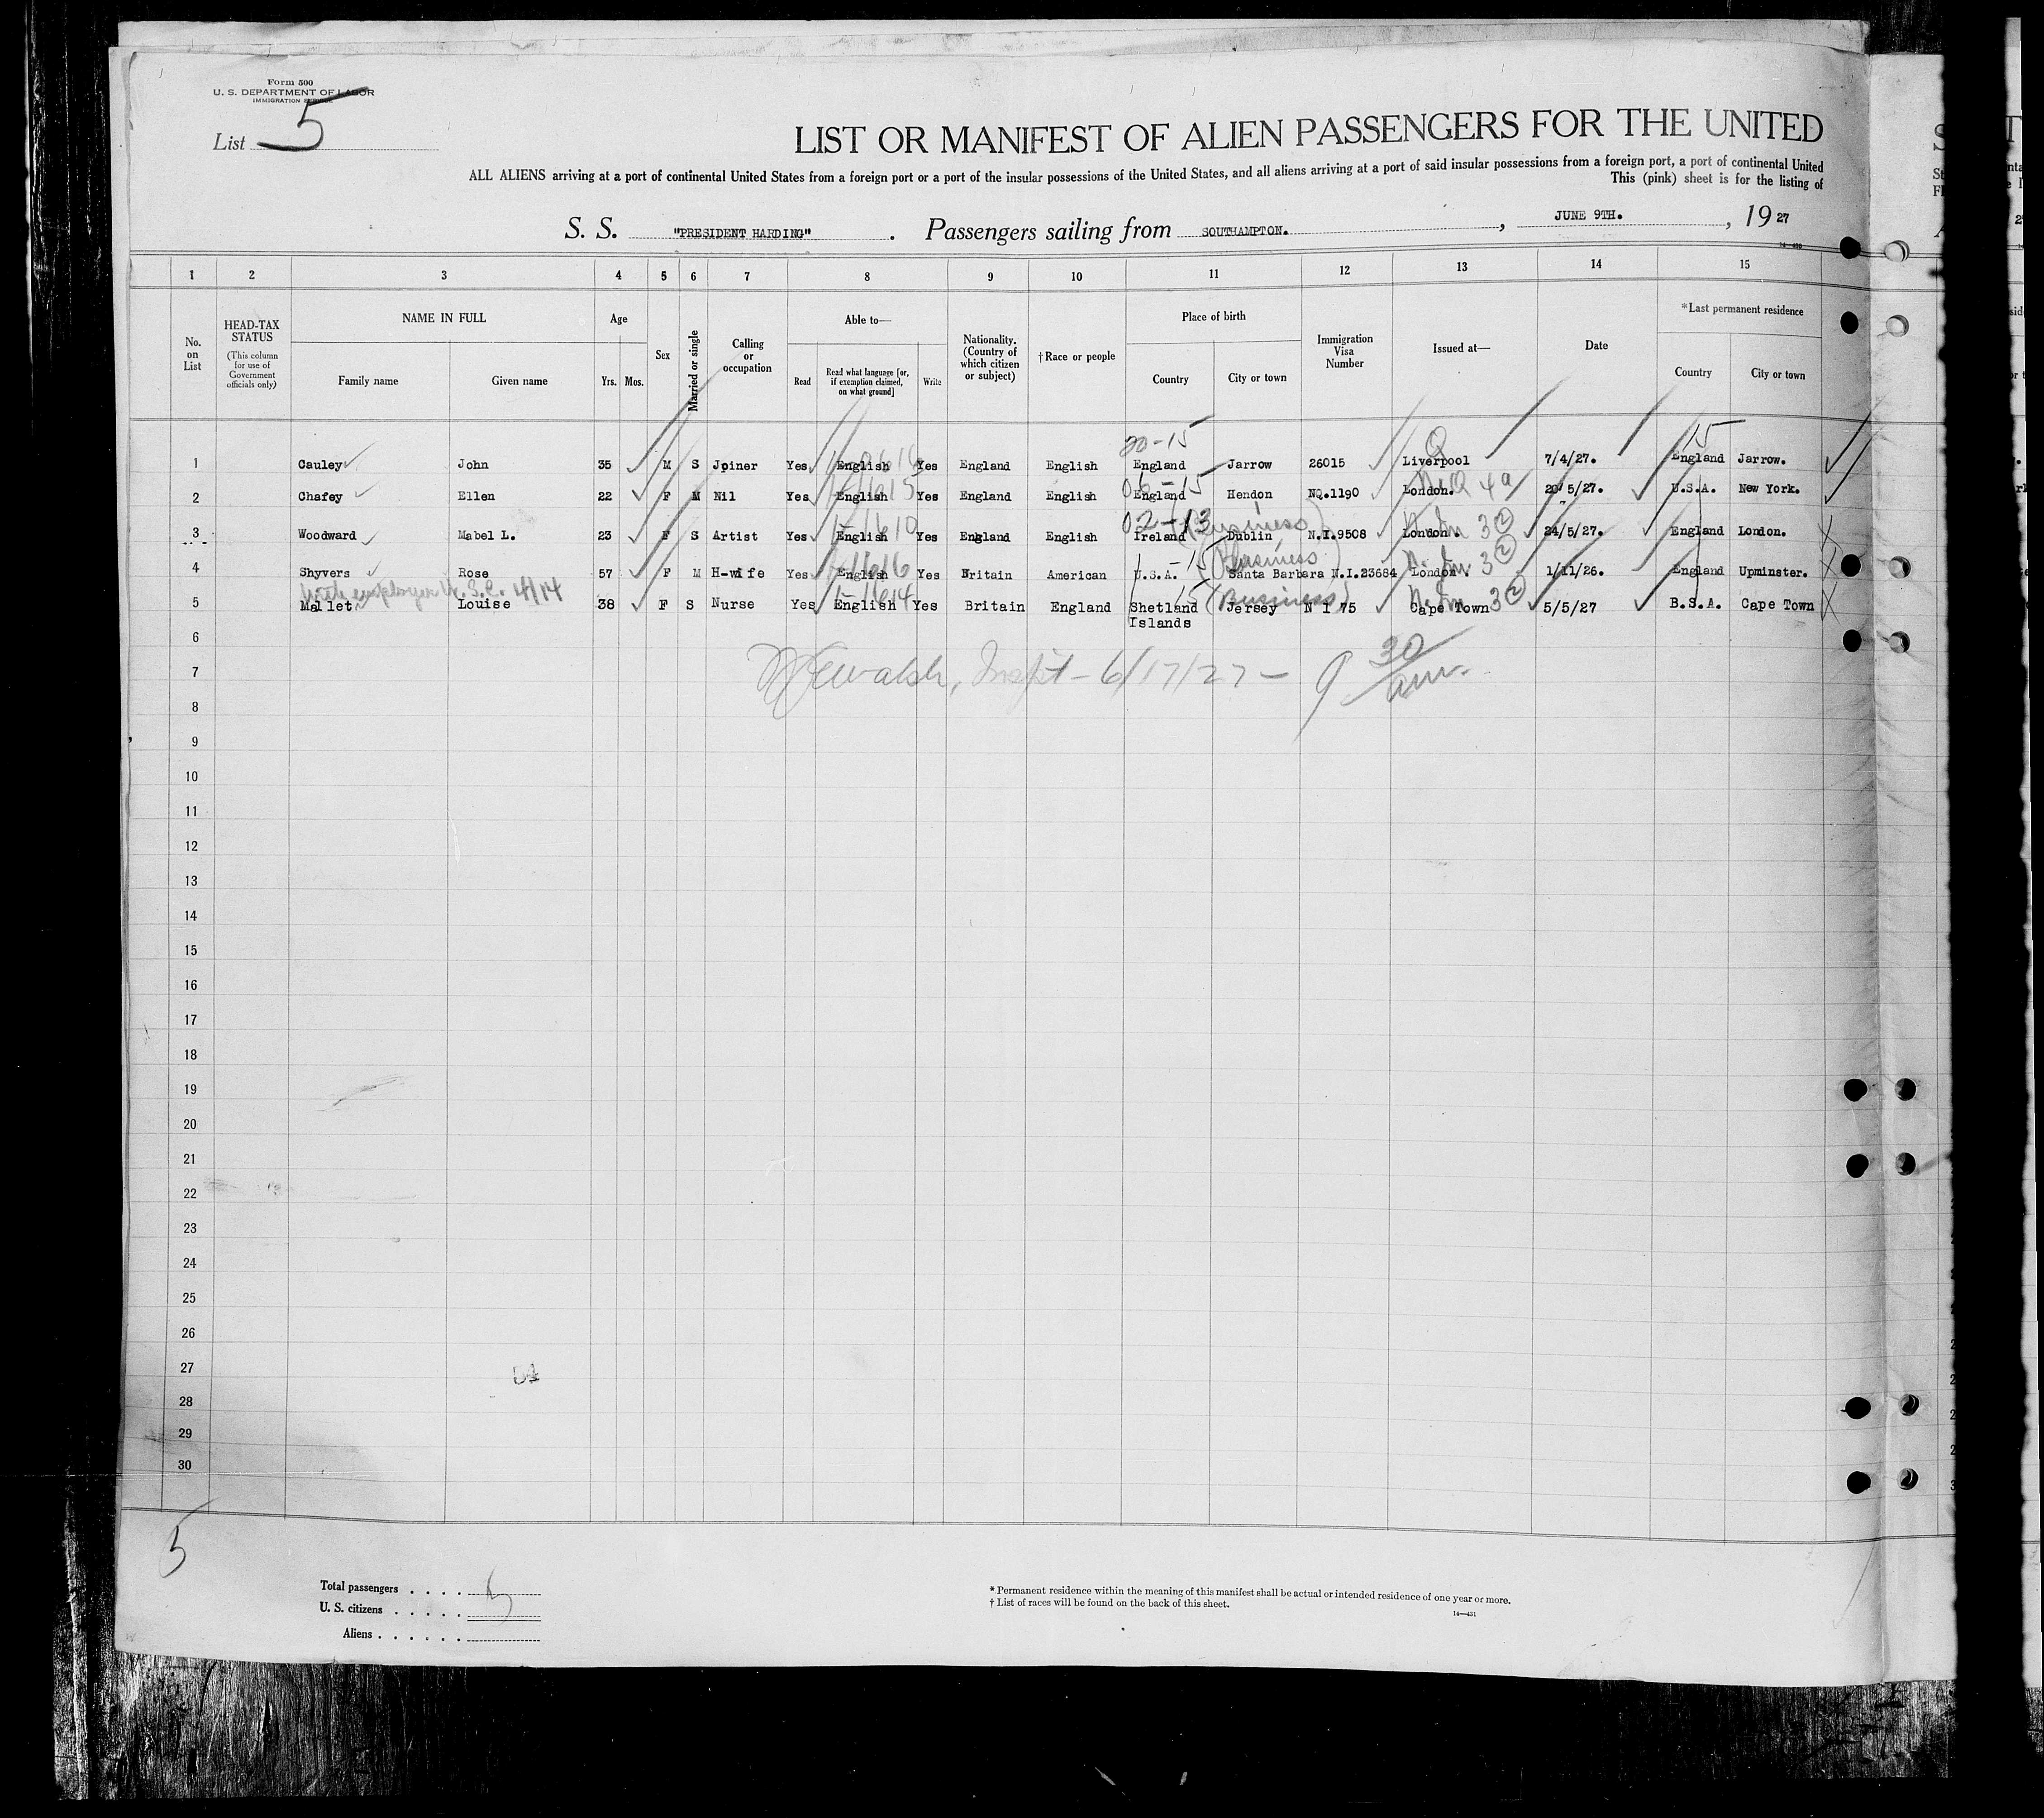 Form 500
U. S. DEPARTMENT OF LABOR
IMMIGRATION SERVICE
List 5
LIST OR MANIFEST OF ALIEN PASSENGERS FOR THE UNITED
ALL ALIENS arriving at a port of continental United States from a foreign port or a port of the insular possessions of the United States, and all aliens arriving at a port of said insular possessions from a foreign port, a port of continental United
This (pink) sheet is for the listing of
S. S. "PRESIDENT HARDING" . Passengers sailing from SOUTHAMPTON. , JUNE 9TH. , 19 27
14—430
1 2 3 4 5 6 7 8 9 10 11 12 13 14 15
No. on List
HEAD-TAX STATUS
(This column for use of Government officials only)
NAME IN FULL
Family name Given name
Age
Yrs. Mos.
Sex
Married or single
Calling or occupation
Able to—
Read
Read what language [or, if exemption claimed, on what ground]
Write
Nationality. (Country of which citizen or subject)
†Race or people
Place of birth
Country City or town
Immigration Visa Number
Issued at—
Date
*Last permanent residence
Country City or town
20-15 Q 15
1 Cauley John 35 M S Joiner Yes English Yes England English England Jarrow 26015 Liverpool 7/4/27. England Jarrow.
06-15
2 Chafey Ellen 22 F M Nil Yes English Yes England English England Hendon NQ.1190 London. 4a 20/5/27. U.S.A. New York.
02-13 (Business)
3 Woodward Mabel L. 23 F S Artist Yes English Yes England English Ireland Dublin N.I.9508 London. 3 (2) 24/5/27. England London.
-15 (Business)
4 Shyvers Rose 57 F M H-wife Yes English Yes Britain American U.S.A. Santa Barbara N.I.23684 London. 3 (2) 1/11/26. England Upminster.
with employer 4/14
15 (Business)
5 Mallet Louise 38 F S Nurse Yes English Yes Britain England Shetland Islands Jersey N I 75 Cape Town 3 (2) 5/5/27 B.S.A. Cape Town
6
Walsh, Inspt - 6/17/27 - 9 30/am.
7
8
9
10
11
12
13
14
15
16
17
18
19
20
21
22
23
24
25
26
27
28
29
30
5
Total passengers . . . . 5
U. S. citizens . . . . .
Aliens . . . . . .
* Permanent residence within the meaning of this manifest shall be actual or intended residence of one year or more.
† List of races will be found on the back of this sheet.
14—431